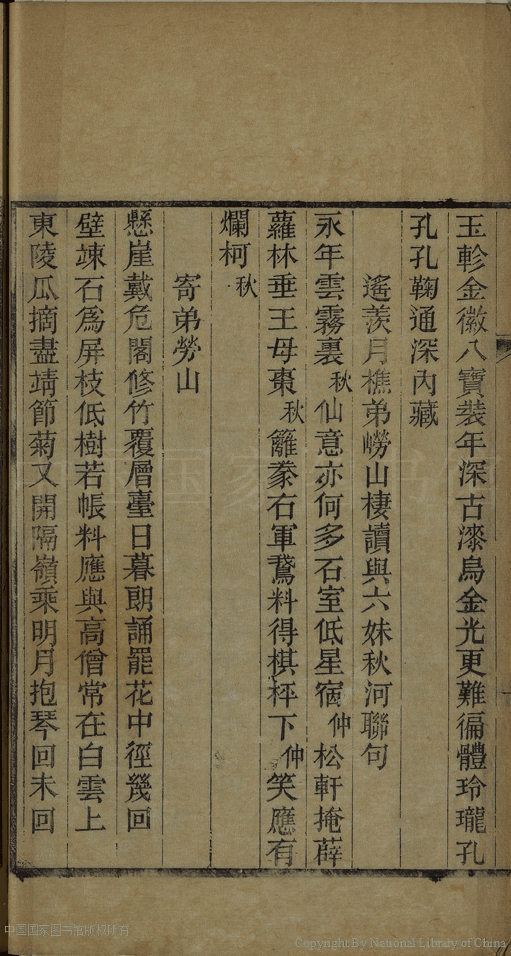 玉軫金徽八寶裝年深古漆烏金光更難徧體玲瓏孔
孔孔鞠通深內藏
遙羨月樵弟嶗山棲讀與六妹秋河聯句
永年雲霧裏秋仙意亦何多石室低星宿仲松軒掩薜
蘿林垂王母棗秋籬豢右軍鵞料得棋枰下仲笑應有
爛柯秋
寄弟勞山
懸崖戴危閣修竹覆層臺日暮朗誦罷花中徑幾回
壁竦石爲屏枝低樹若帳料應與高僧常在白雲上
東陵瓜摘盡靖節菊又開隔嶺乘明月抱琴回未回
中国国家图书馆版权所有
Copyright By National Library of China